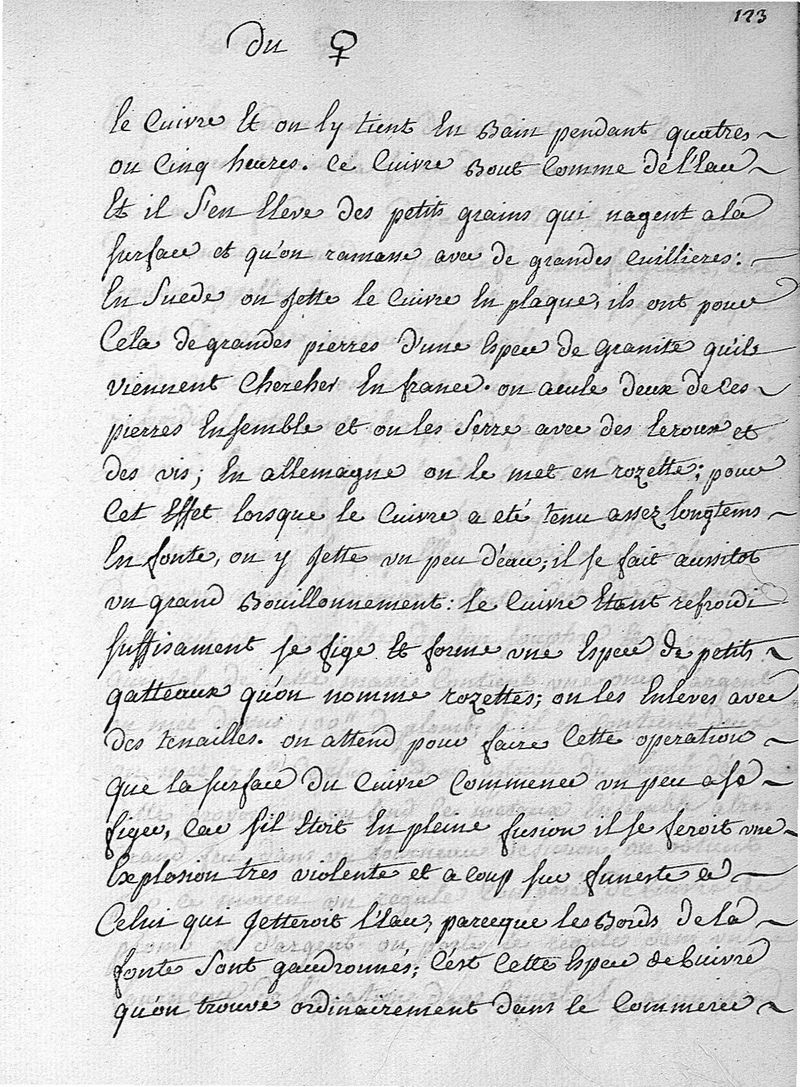 123
du ♀
le Cuivre Et on l'y tient En Bain pendant quatres
ou Cinq heures. Ce Cuivre Bout Comme de l'Eau
Et il S'en Eleve des petits grains qui nagent a la
surface et qu'on ramasse avec de grandes cuillieres:
En Suede on Jette le Cuivre En plaque, ils ont pour
Cela de grandes pierres d'une Espece de Granite qu'ils
viennent Chercher En france. on acule deux de Ces
pierres Ensemble et on les Serre avec des Ecroux et
des vis; En allemagne on le met en rozette; pour
Cet Effet lorsque le Cuivre a eté tenu assez longtems
En fonte, on y Jette un peu d'eau; il se fait aussitot
un grand Bouillonnement: le Cuivre Etant refroidi
suffisament se fige Et forme une Espece de petits
gatteaux qu'on nomme rozettes; on les Enleves avec
des tenailles. on attend pour faire Cette operation
que la surface du Cuivre Commence un peu a se
figer, Car s'il Etoit En pleine fusion il se feroit une
Explosion tres violente et a coup sur funeste à
Celui qui Jetteroit l'Eau, parceque les Bords de la
fonte Sont gaudronnés; C'est Cette Espece de Cuivre
qu'on trouve ordinairement dans le Commerce